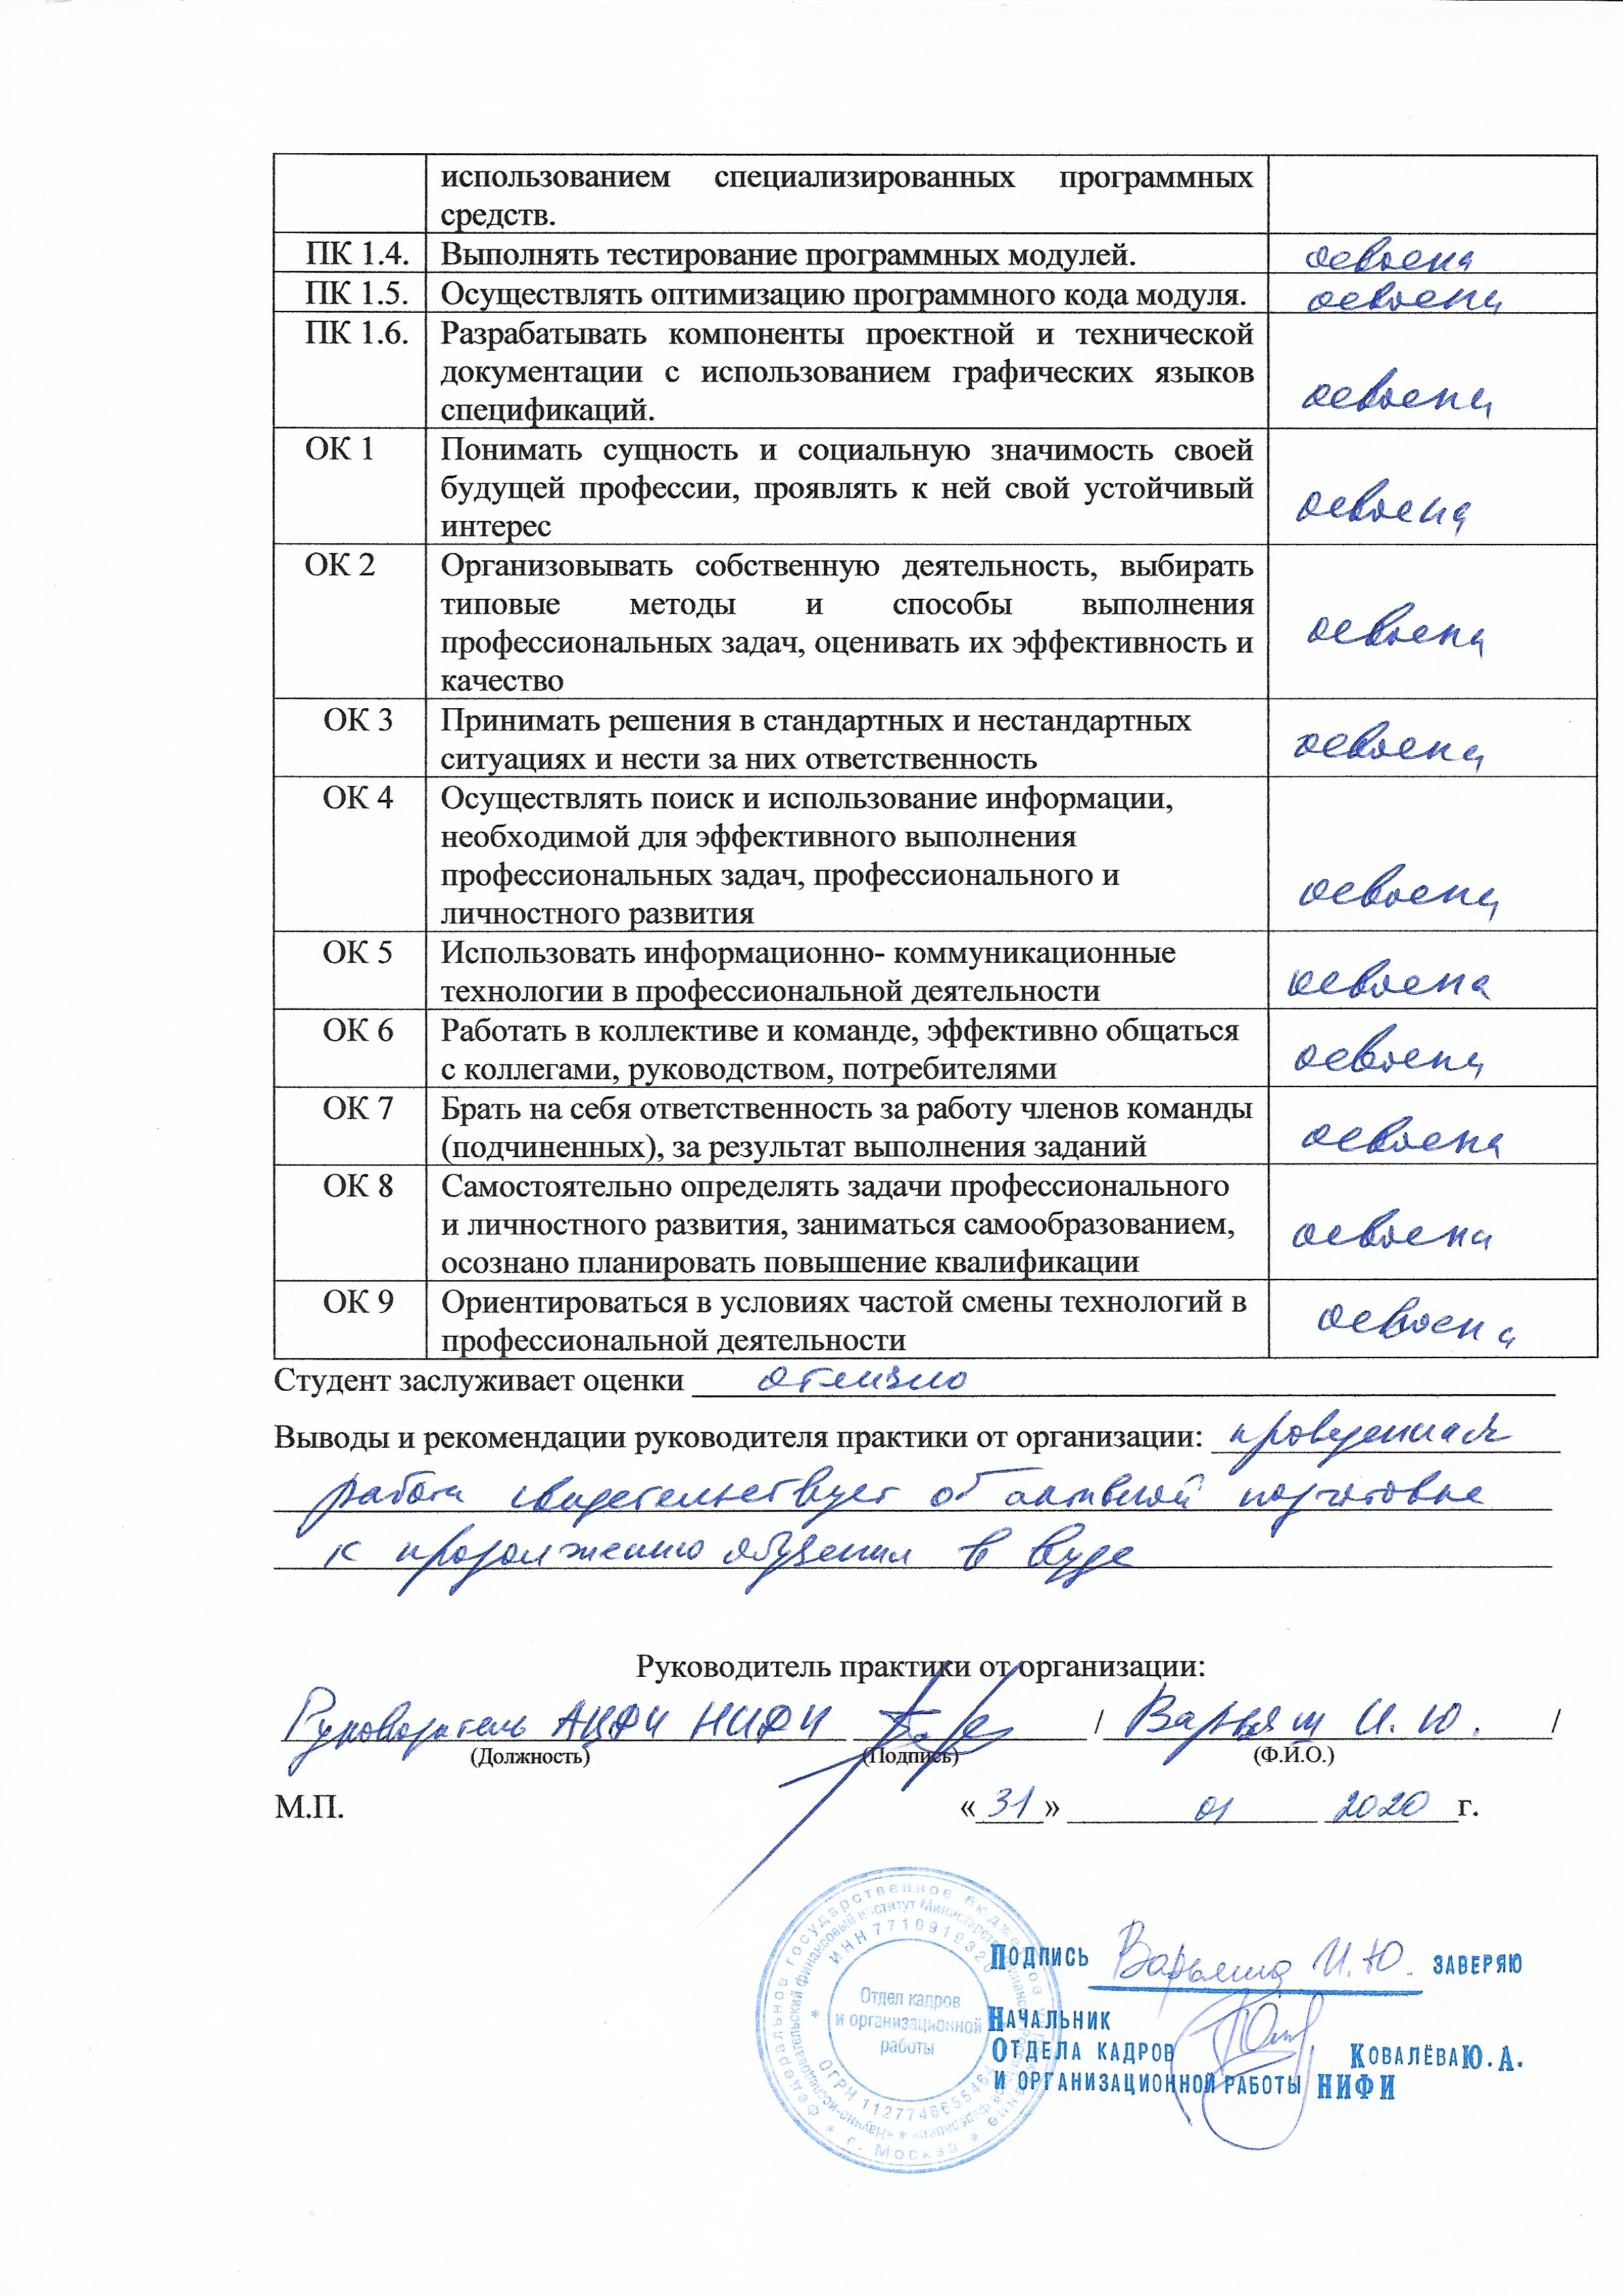 использованием специализированных программных
средств.
ПК 1.4. Выполнять тестирование программных модулей. освоена
ПК 1.5. Осуществлять оптимизацию программного кода модуля. освоена
ПК 1.6. Разрабатывать компоненты проектной и технической
документации с использованием графических языков
спецификаций. освоена
ОК 1 Понимать сущность и социальную значимость своей
будущей профессии, проявлять к ней свой устойчивый
интерес освоена
ОК 2 Организовывать собственную деятельность, выбирать
типовые методы и способы выполнения
профессиональных задач, оценивать их эффективность и
качество освоена
ОК 3 Принимать решения в стандартных и нестандартных
ситуациях и нести за них ответственность освоена
ОК 4 Осуществлять поиск и использование информации,
необходимой для эффективного выполнения
профессиональных задач, профессионального и
личностного развития освоена
ОК 5 Использовать информационно- коммуникационные
технологии в профессиональной деятельности освоена
ОК 6 Работать в коллективе и команде, эффективно общаться
с коллегами, руководством, потребителями освоена
ОК 7 Брать на себя ответственность за работу членов команды
(подчиненных), за результат выполнения заданий освоена
ОК 8 Самостоятельно определять задачи профессионального
и личностного развития, заниматься самообразованием,
осознано планировать повышение квалификации освоена
ОК 9 Ориентироваться в условиях частой смены технологий в
профессиональной деятельности освоена
Студент заслуживает оценки отлично
Выводы и рекомендации руководителя практики от организации: проведенная
работа свидетельствует об активной подготовке
к продолжению обучения в вузе
Руководитель практики от организации:
Руководитель АЦФИ НИФИ / Варьяш И.Ю. /
(Должность) (Подпись) (Ф.И.О.)
М.П. «31» 01 2020 г.
Федеральное государственное бюджетное
г. Москва
ИНН 7710919320
Отдел кадров
и организационной
работы
ОГРН 1127746655464
ПОДПИСЬ Варьяша И.Ю. ЗАВЕРЯЮ
НАЧАЛЬНИК
ОТДЕЛА КАДРОВ КОВАЛЁВА Ю.А.
И ОРГАНИЗАЦИОННОЙ РАБОТЫ НИФИ